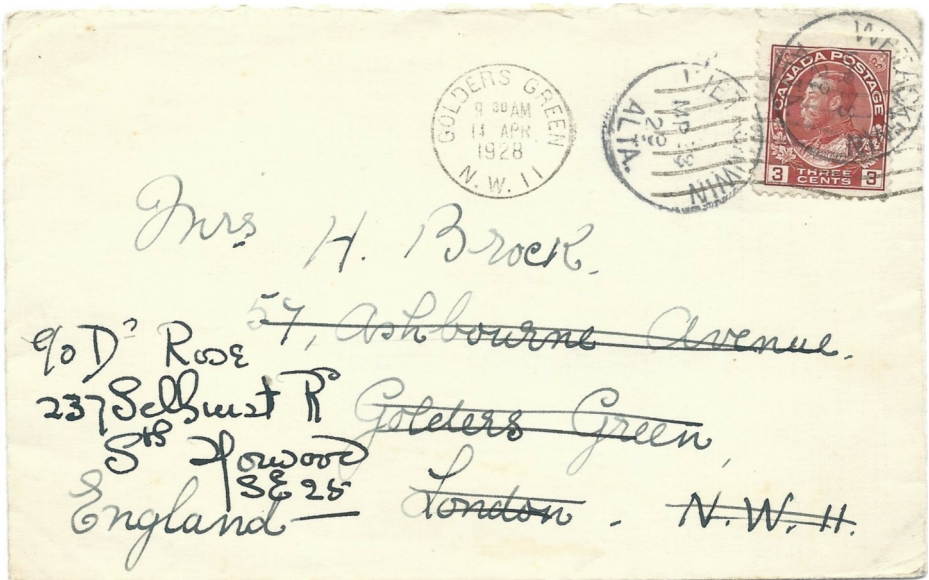 GOLDERS GREEN
9 30 AM
14 APR
1928
N.W. 11
ALTA.
CANADA POSTAGE
3 THREE CENTS 3
Mrs H. Brock.
57, Ashbourne Avenue.
Golders Green,
London. N.W. 11.
c/o Dr Rose
237 Selhurst Rd
Sth Norwood
SE 25
England